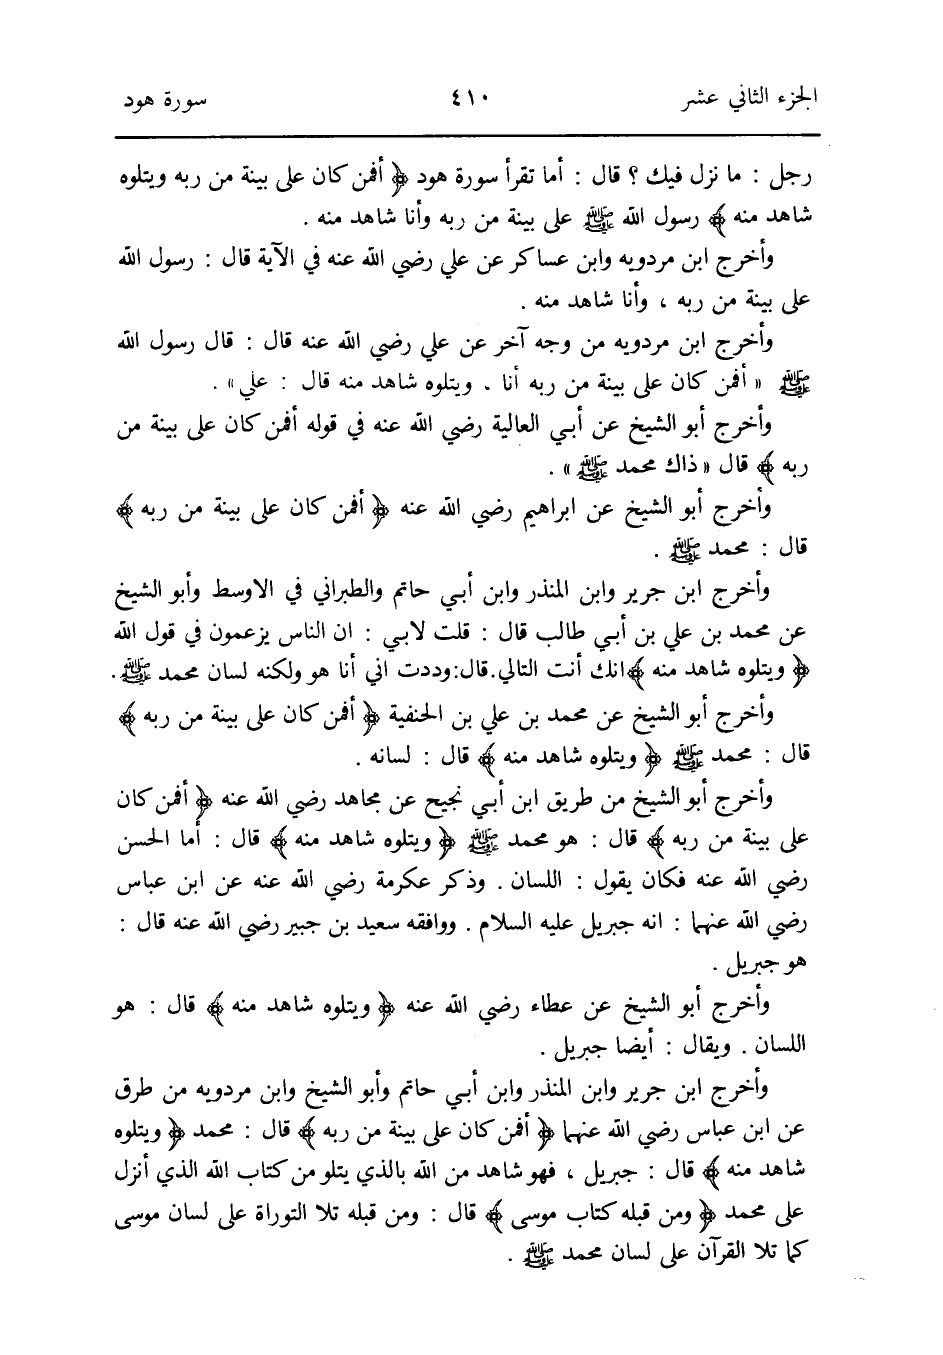 الجزء الثاني عشر ٤١٠ سورة هود
رجل : ما نزل فيك ؟ قال : أما تقرأ سورة هود ﴿ أفمن كان على بينة من ربه ويتلوه
شاهد منه ﴾ رسول الله ﷺ على بينة من ربه وأنا شاهد منه .
وأخرج ابن مردويه وابن عساكر عن علي رضي الله عنه في الآية قال : رسول الله
على بينة من ربه ، وأنا شاهد منه .
وأخرج ابن مردويه من وجه آخر عن علي رضي الله عنه قال : قال رسول الله
ﷺ « أفمن كان على بينة من ربه أنا . ويتلوه شاهد منه قال : علي» .
وأخرج أبو الشيخ عن أبي العالية رضي الله عنه في قوله أفمن كان على بينة من
ربه ﴾ قال « ذاك محمد ﷺ » .
وأخرج أبو الشيخ عن ابراهيم رضي الله عنه ﴿ أفمن كان على بينة من ربه ﴾
قال : محمد ﷺ .
وأخرج ابن جرير وابن المنذر وابن أبي حاتم والطبراني في الاوسط وأبو الشيخ
عن محمد بن علي بن أبي طالب قال : قلت لابي : ان الناس يزعمون في قول الله
﴿ ويتلوه شاهد منه ﴾ انك أنت التالي. قال: وددت اني أنا هو ولكنه لسان محمد ﷺ .
وأخرج أبو الشيخ عن محمد بن علي بن الحنفية ﴿ أفمن كان على بينة من ربه ﴾
قال : محمد ﷺ ﴿ ويتلوه شاهد منه ﴾ قال : لسانه .
وأخرج أبو الشيخ من طريق ابن أبي نجيح عن مجاهد رضي الله عنه ﴿ أفمن كان
على بينة من ربه ﴾ قال : هو محمد ﷺ ﴿ ويتلوه شاهد منه ﴾ قال : أما الحسن
رضي الله عنه فكان يقول : اللسان . وذكر عكرمة رضي الله عنه عن ابن عباس
رضي الله عنهما : انه جبريل عليه السلام . ووافقه سعيد بن جبير رضي الله عنه قال :
هو جبريل .
وأخرج أبو الشيخ عن عطاء رضي الله عنه ﴿ ويتلوه شاهد منه ﴾ قال : هو
اللسان . ويقال : أيضا جبريل .
وأخرج ابن جرير وابن المنذر وابن أبي حاتم وأبو الشيخ وابن مردويه من طرق
عن ابن عباس رضي الله عنهما ﴿ أفمن كان على بينة من ربه ﴾ قال : محمد ﴿ ويتلوه
شاهد منه ﴾ قال : جبريل ، فهو شاهد من الله بالذي يتلو من كتاب الله الذي أنزل
على محمد ﴿ ومن قبله كتاب موسى ﴾ قال : ومن قبله تلا التوراة على لسان موسى
كما تلا القرآن على لسان محمد ﷺ .